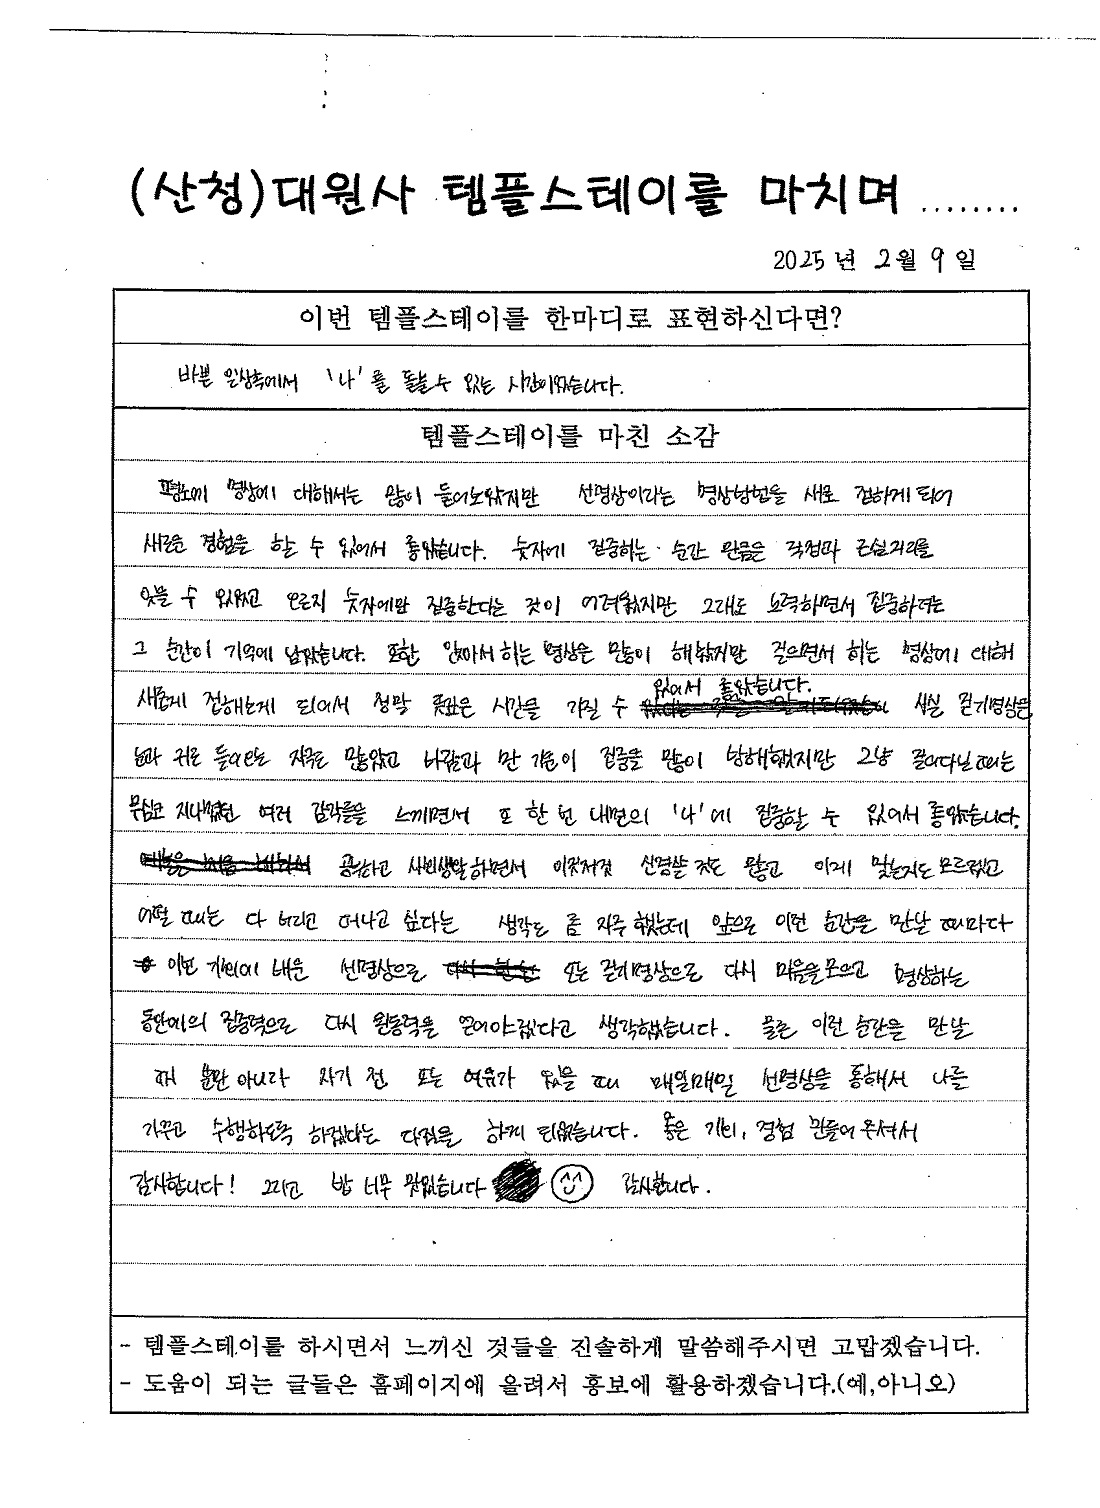 (산청)대원사 템플스테이를 마치며 ........
2025년 2월 9일
이번 템플스테이를 한마디로 표현하신다면?
바쁜 일상속에서 '나'를 돌볼 수 있는 시간이었습니다.
템플스테이를 마친 소감
평소에 명상에 대해서는 많이 들어보았지만 선명상이라는 명상방법을 새로 접하게 되어
새로운 경험을 할 수 있어서 좋았습니다. 숫자에 집중하는 순간 만큼은 걱정과 근심거리를
잊을 수 있었고 오로지 숫자에만 집중한다는 것이 어려웠지만 그래도 노력하면서 집중하려는
그 순간이 기억에 남았습니다. 또한 앉아서 하는 명상은 많이 해봤지만 걸으면서 하는 명상에 대해
새롭게 접하는게 되어서 정말 좋은 시간을 가질 수 있어서 좋았습니다. 사실 걷기명상은
눈과 귀로 들어오는 자극도 많았고 바람과 만 집중을 많이 방해했지만 그냥 걸어다닐 때는
무심코 지나쳤던 여러 감각들을 느끼면서 또 한 번 내면의 '나'에 집중할 수 있어서 좋았습니다.
공부하고 사회생활하면서 이것저것 신경쓸 것도 많고 이게 맞는지도 모르겠고
어떨 때는 다 버리고 떠나고 싶다는 생각도 좀 자주 했는데 앞으로 이런 순간을 만날 때마다
이번 기회에 배운 선명상으로 또는 걷기명상으로 다시 마음을 모으고 명상하는
동안에의 집중력으로 다시 원동력을 얻어야겠다고 생각했습니다. 물론 이런 순간을 만날
때 뿐만 아니라 자기 전 또는 여유가 있을 때 매일매일 선명상을 통해서 나를
가꾸고 수행하도록 하겠다는 다짐을 하게 되었습니다. 좋은 기회, 경험 만들어 주셔서
감사합니다! 그리고 밥 너무 맛있습니다 감사합니다.
- 템플스테이를 하시면서 느끼신 것들을 진솔하게 말씀해주시면 고맙겠습니다.
- 도움이 되는 글들은 홈페이지에 올려서 홍보에 활용하겠습니다.(예,아니오)